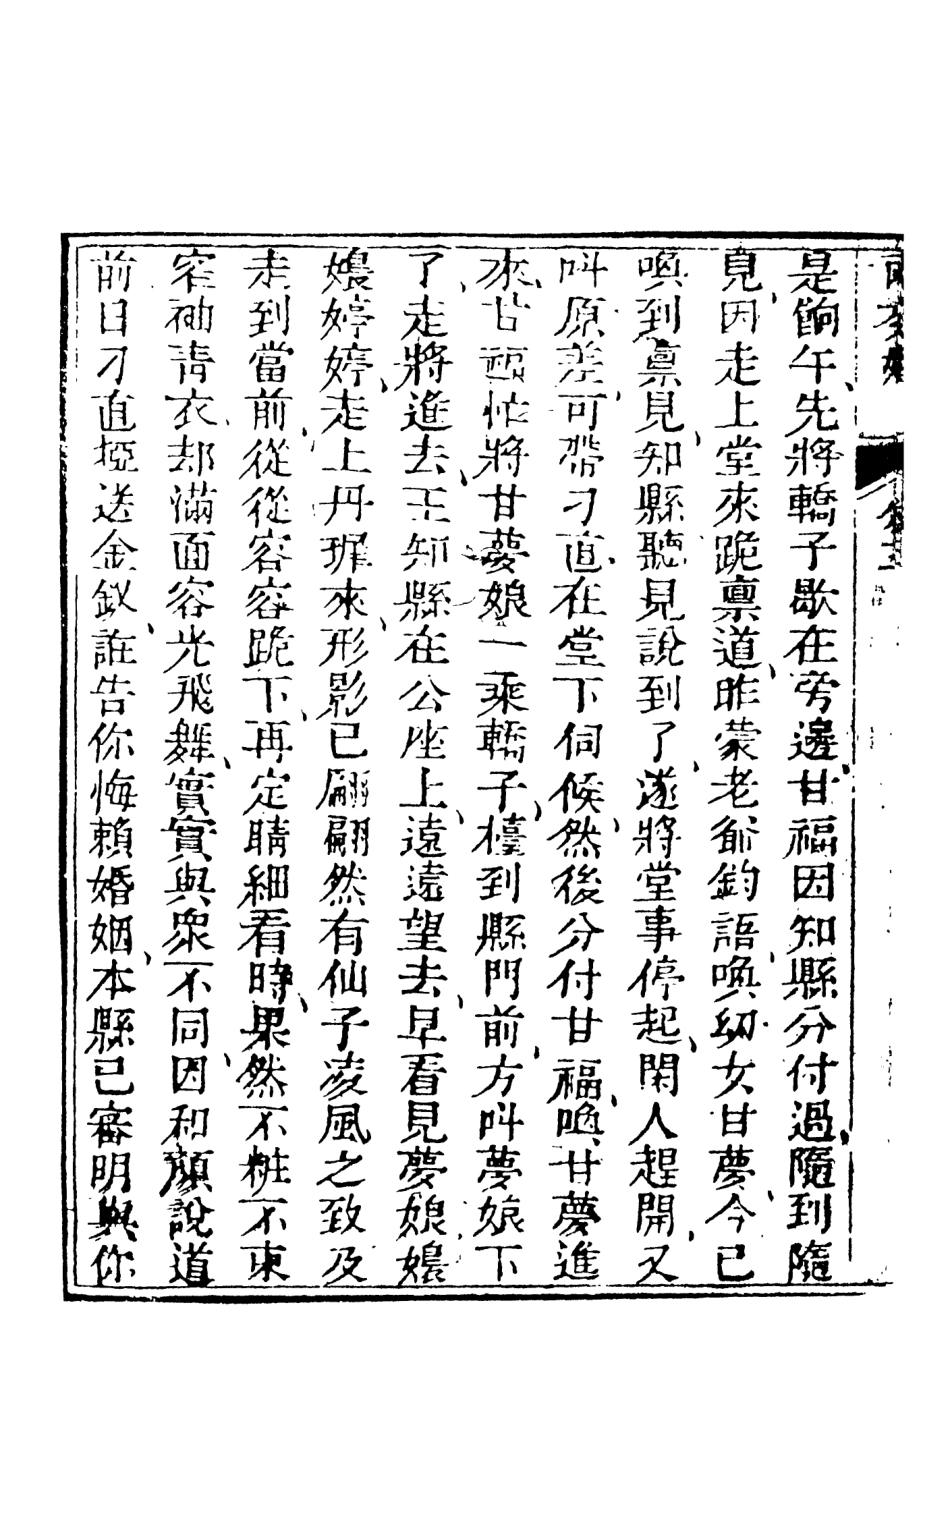 是餉午、先將轎子歇在旁邊、甘福因知縣分付過、隨到隨
見、因走上堂來跪稟道、昨蒙老爺鈞語喚幼女甘夢、今已
喚到稟見、知縣聽見說到了、遂將堂事停起、閑人趕開、又
叫原差、可帶刁直在堂下伺候、然後分付甘福、喚甘夢進
來、甘福忙將甘夢娘一乘轎子、檯到縣門前、方叫夢娘下
了、走將進去、王知縣在公座上、遠遠望去、早看見夢娘、嬝
嬝婷婷、走上丹墀來、形影已翩翩然有仙子凌風之致、及
走到當前、從從容容跪下、再定睛細看時、果然不粧不束
窄袖青衣、却滿面容光飛舞、實實與衆不同、因和顏說道
前日刁直掗送金釵、誑告你悔賴婚姻、本縣已審明與你